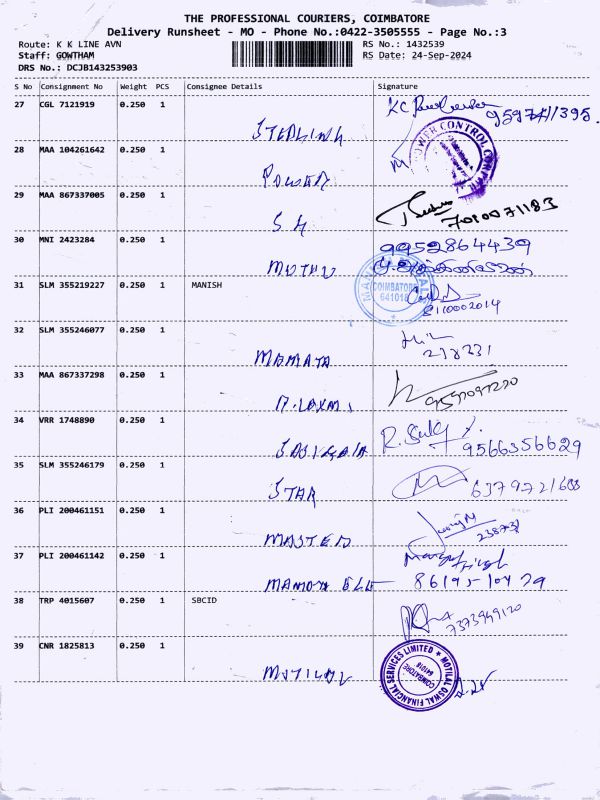 THE PROFESSIONAL COURIERS, COIMBATORE
Delivery Runsheet - MO - Phone No.:0422-3505555 - Page No.:3
Route: K K LINE AVN
RS No.: 1432539
Staff: GOWTHAM
RS Date: 24-Sep-2024
DRS No.: DCJB143253903
S No Consignment No Weight PCS Consignee Details Signature
27 CGL 7121919 0.250 1
STERLING
POWER CONTROL COMPANY
28 MAA 104261642 0.250 1
POWER
29 MAA 867337005 0.250 1
7010071183
30 MNI 2423284 0.250 1
9952864439
MUTHU
31 SLM 355219227 0.250 1 MANISH
COIMBATORE
641018
8110002014
32 SLM 355246077 0.250 1
MAMATA
33 MAA 867337298 0.250 1
34 VRR 1748890 0.250 1
9566356629
35 SLM 355246179 0.250 1
STAR
36 PLI 200461151 0.250 1
MASTER
37 PLI 200461142 0.250 1
38 TRP 4015607 0.250 1 SBCID
7373949120
39 CNR 1825813 0.250 1
MOTILAL
MOTILAL OSWAL FINANCIAL SERVICES LIMITED
COIMBATORE
641018